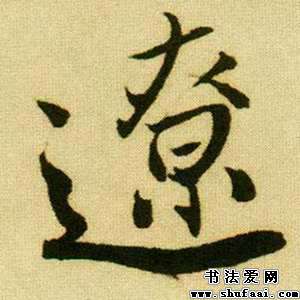 遼
书法爱网
www.shufaai.com